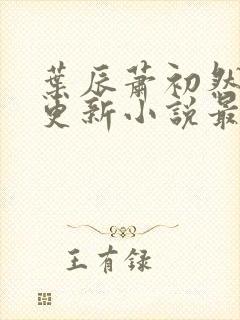 葉辰蕭初然
更新小說最
王有録